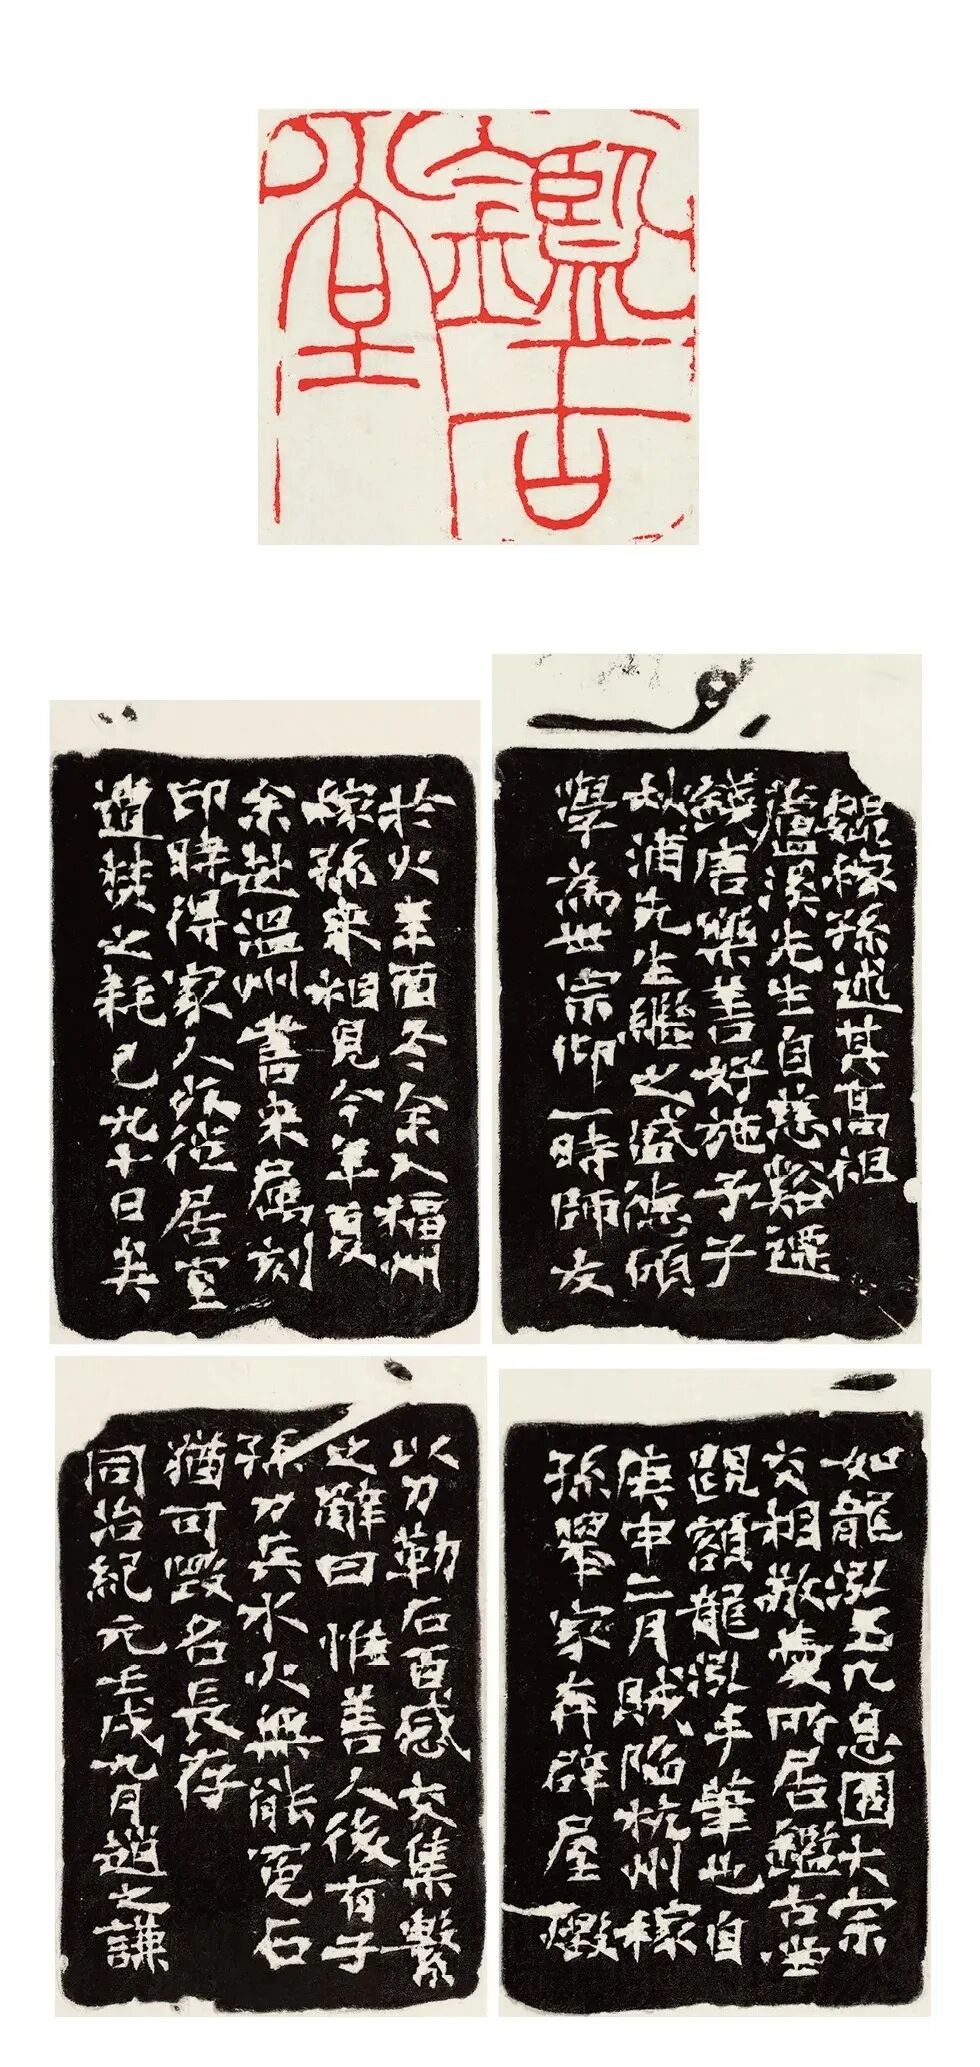 鑑古
堂
魏稼孫述其高祖
蘆溪先生自慈谿遷
錢唐樂善好施予子
秋浦先生繼之盛德碩
學為世宗仰一時師友
如龍泓玉几息園大宗
交相敬愛所居鑑古堂
題額龍泓手筆也自
庚申二月賊陷杭州稼
孫挈家奔辟屋燬
於火辛酉冬余入福州
稼孫來相見今年夏
余赴溫州書來屬刻
印時得家人徙居室
遘焚之耗已九十日矣
以刀勒石百感交集繫
之辭曰惟善人後有子
孫刀兵水火無能冤石
猶可毀名長存
同治紀元壬戌九月趙之謙